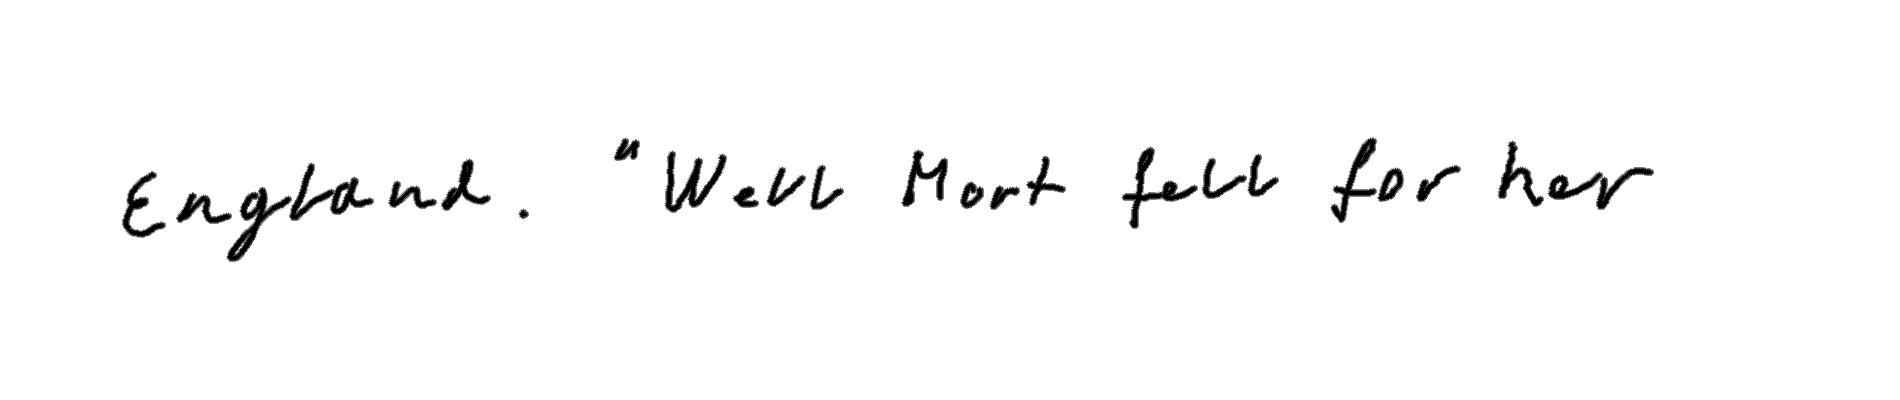 England. "Well Mort fell for her